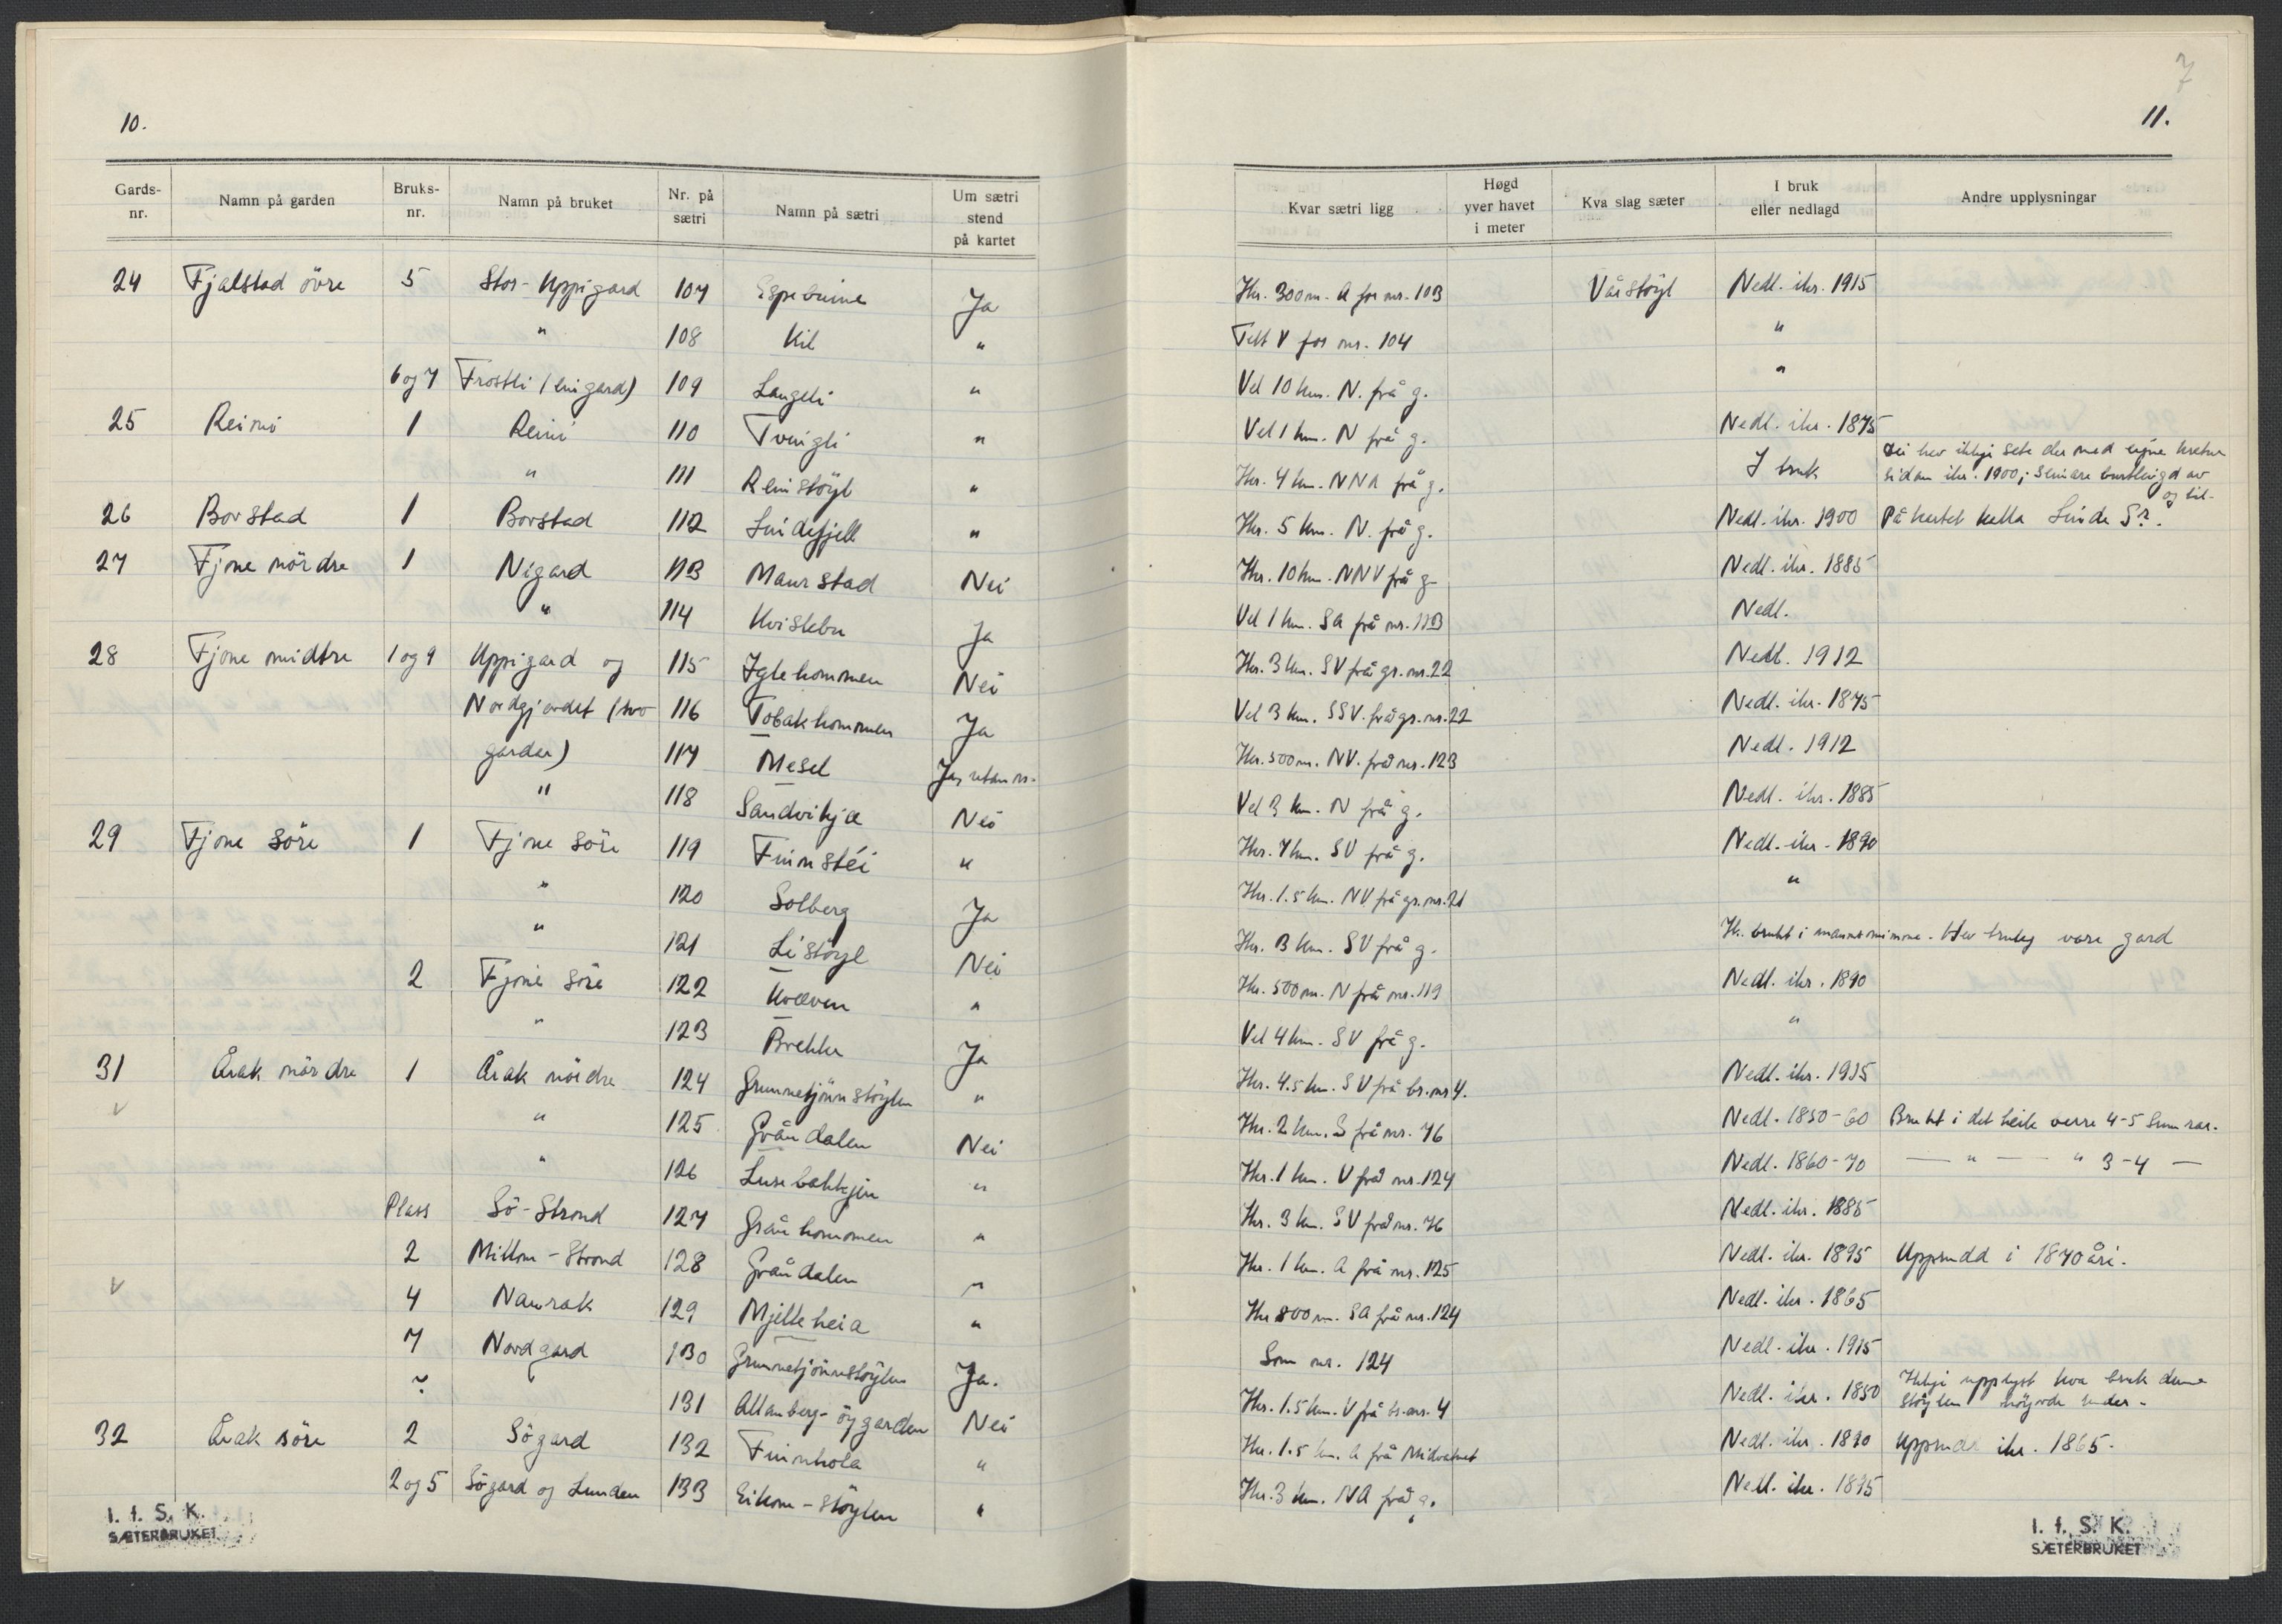 10.
Gards-nr. Namn på garden Bruks-nr. Namn på bruket Nr. på sætri Namn på sætri Um sætri stend på kartet
24 Fjalstad övre 5 Stor-Uppigard 107 Espebuine Ja
" 108 Kil "
6 og 7 Frostli (ein gard) 109 Langeli "
25 Reimi 1 Reini 110 Tvingli "
" 111 Reinstöyl "
26 Borstad 1 Borstad 112 Lindefjell "
27 Fjone nördre 1 Nigard 113 Maurstad Nei
" 114 Kvistebu Ja
28 Fjone midtre 1 og 9 Uppigard og 115 Iglehommen Nei
Nordgjerdet (tvo 116 Tobakhommen Ja
gardar) 117 Mesel Ja, utan n.
" 118 Sandvikjæ Nei
29 Fjone söre 1 Fjone söre 119 Finnstéi "
" 120 Solberg Ja
" 121 Listöyl Nei
2 Fjone söre 122 Kvæven "
" 123 Brekka Ja
31 Årak nördre 1 Årak nördre 124 Grunnetjönnstöylen "
v " 125 Gråndalen Nei
" 126 Lusebakkjin "
Plass Sö-Strond 127 Grånhommen "
2 Mittom-Strond 128 Gråndalen "
v 4 Namrak 129 Mjelleheia "
7 Nordgard 130 Grunnetjönnstöylen Ja.
? 131 Attanberg-öygarden Nei
32 Årak söre 2 Sögard 132 Finnhola "
2 og 5 Sögard og Lunden 133 Eikom-stöylen "
I. f. S. K.
SÆTERBRUKET
7
11.
Kvar sætri ligg Høgd yver havet i meter Kva slag sæter I bruk eller nedlagd Andre upplysningar
Ikr. 300 m. A for nr. 103 Vårstöyl Nedl. ikr. 1915
Tett V for nr. 104 "
Vel 10 km. N. frå g. "
Vel 1 km. N frå g. Nedl. ikr. 1875
Ikr. 4 km. NNA frå g. I bruk Dei hev ikkje sete der med eigne kretur
sidan ikr. 1900; seinare burtleigd av
og til.
Ikr. 5 km. N. frå g. Nedl. ikr. 1900 På kartet kalla Linde Sr.
Ikr. 10 km. NNV frå g. Nedl. ikr. 1885
Vel 1 km. SA frå nr. 113 Nedl.
Ikr. 3 km. SV frå gr. nr. 22 Nedl. 1912
Vel 3 km. SSV. frå gr. nr. 22 Nedl. ikr. 1875
Ikr. 500 m. NV. frå nr. 123 Nedl. 1912
Vel 3 km. N frå g. Nedl. ikr. 1885
Ikr. 7 km. SV frå g. Nedl. ikr. 1890
Ikr. 1.5 km. NV frå gr. nr. 21 "
Ikr. 3 km. SV frå g. Ik. brukt i mannsminne. Hev truleg vore gard
Ikr. 500 m. N frå nr. 119 Nedl. ikr. 1890
Vel 4 km. SV frå g. "
Ikr. 4.5 km. SV frå br. nr 4. Nedl. ikr. 1915
Ikr. 2 km. S frå nr. 76 Nedl. 1850-60 Brukt i det heile verre 4-5 sumrar.
Ikr. 1 km. V frå nr. 124 Nedl. 1860-70 — " — " 3-4 —
Ikr. 3 km. SV frå nr. 76 Nedl. ikr. 1885
Ikr. 1 km. A frå nr. 125 Nedl. ikr. 1895 Upprudd i 1870 åri.
Ikr 800 m. SA frå nr. 124 Nedl. ikr. 1865
Som nr. 124 Nedl. ikr. 1915
Ikr. 1.5 km. V frå br. nr. 4 Nedl. ikr. 1850 Ikkje upplyst kva bruk denne
stöylen höyrde under.
Ikr. 1.5 km. A frå Midvatnet Nedl. ikr. 1890 Upprudd ikr. 1865.
Ikr. 3 km. NA frå g. Nedl. ikr. 1895
I. f. S. K.
SÆTERBRUKET